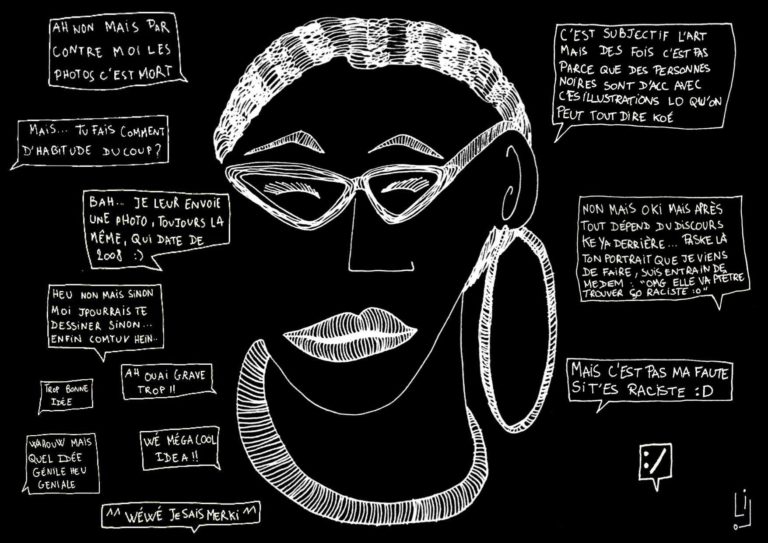 AH NON MAIS PAR
CONTRE MOI LES
PHOTOS C'EST MORT
MAIS... TU FAIS COMMENT
D'HABITUDE DU COUP?
BAH... JE LEUR ENVOIE
UNE PHOTO, TOUJOURS LA
MÊME, QUI DATE DE
2008 :)
HEU NON MAIS SINON
MOI JPOURRAIS TE
DESSINER SINON...
ENFIN COMTUV HEIN..
AH OUAI GRAVE
TROP!!
TROP BONNE
IDÉE
WÉ MÉGA COOL
IDEA!!
WAHOUW MAIS
QUEL IDÉE
GÉNILE HEU
GENIALE
^^ WÉWÉ JE SAIS MERKI ^^
C'EST SUBJECTIF L'ART
MAIS DES FOIS C'EST PAS
PARCE QUE DES PERSONNES
NOIRES SONT D'ACC AVEC
CES ILLUSTRATIONS LO QU'ON
PEUT TOUT DIRE KOÉ
NON MAIS OKI MAIS APRÈS
TOUT DÉPEND DU DISCOURS
KE YA DERRIÈRE... PASKE LÀ
TON PORTRAIT QUE JE VIENS
DE FAIRE, SUIS ENTRAIN DE
ME DEM : "OMG ELLE VA PTETRE
TROUVER ÇO RACISTE :o"
MAIS C'EST PAS MA FAUTE
SI T'ES RACISTE :D
:/